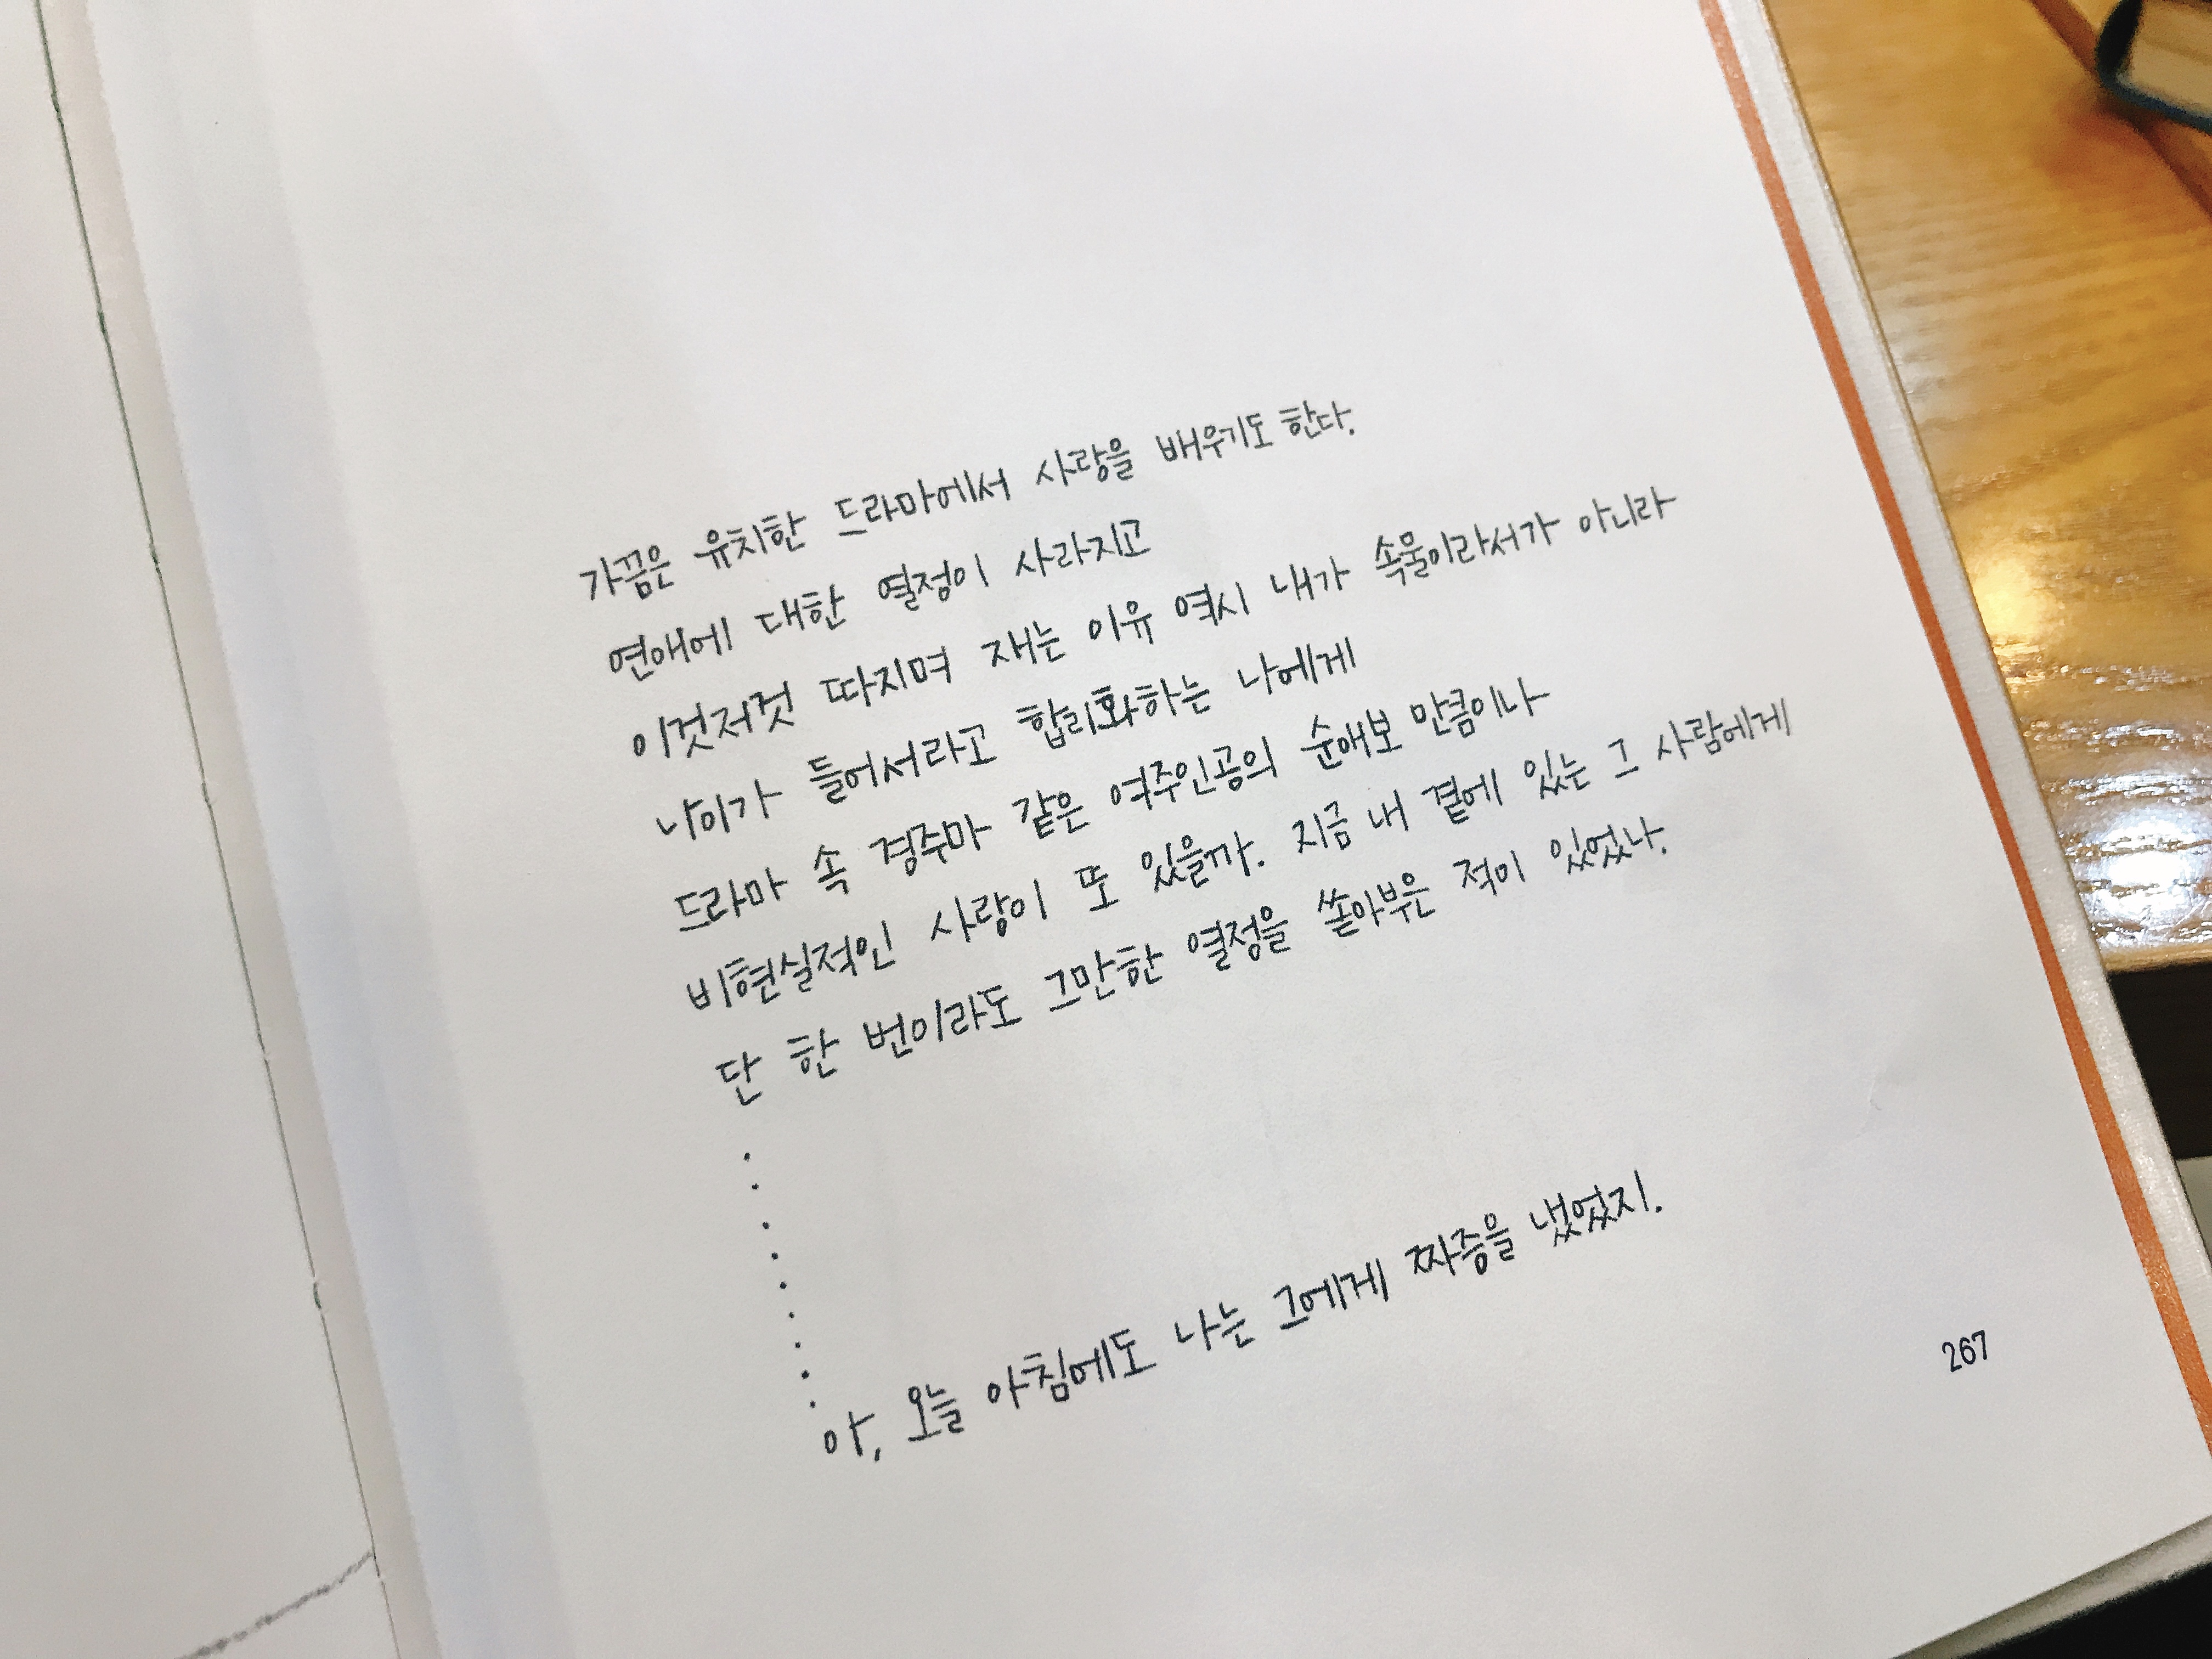 가끔은 유치한 드라마에서 사랑을 배우기도 한다.
연애에 대한 열정이 사라지고
이것저것 따지며 재는 이유 역시 내가 속물이라서가 아니라
나이가 들어서라고 합리화하는 나에게
드라마 속 경주마 같은 여주인공의 순애보 만큼이나
비현실적인 사랑이 또 있을까. 지금 내 곁에 있는 그 사람에게
단 한 번이라도 그만한 열정을 쏟아부은 적이 있었나.
.
.
.
.
.
.
.
.
.
아, 오늘 아침에도 나는 그에게 짜증을 냈었지.
267